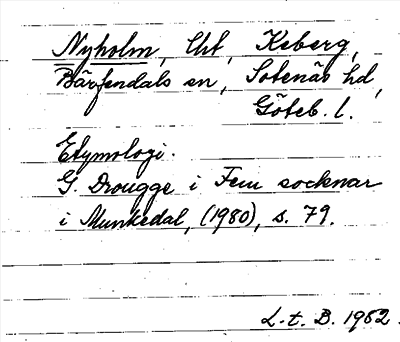 Nyholm, lht, Keberg,
Bärfendals sn, Sotenäs hd,
Göteb. l.
Etymologi.
G. Drougge i Fem socknar
i Munkedal, (1980), s. 79.
L.t. B. 1982.